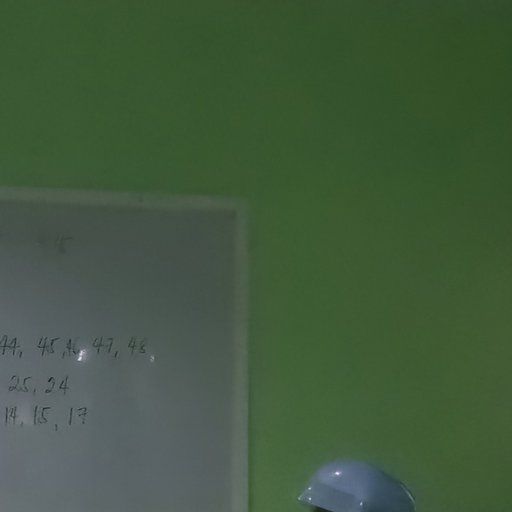 44, 45, 46, 47, 48,
25, 24
14, 15, 17